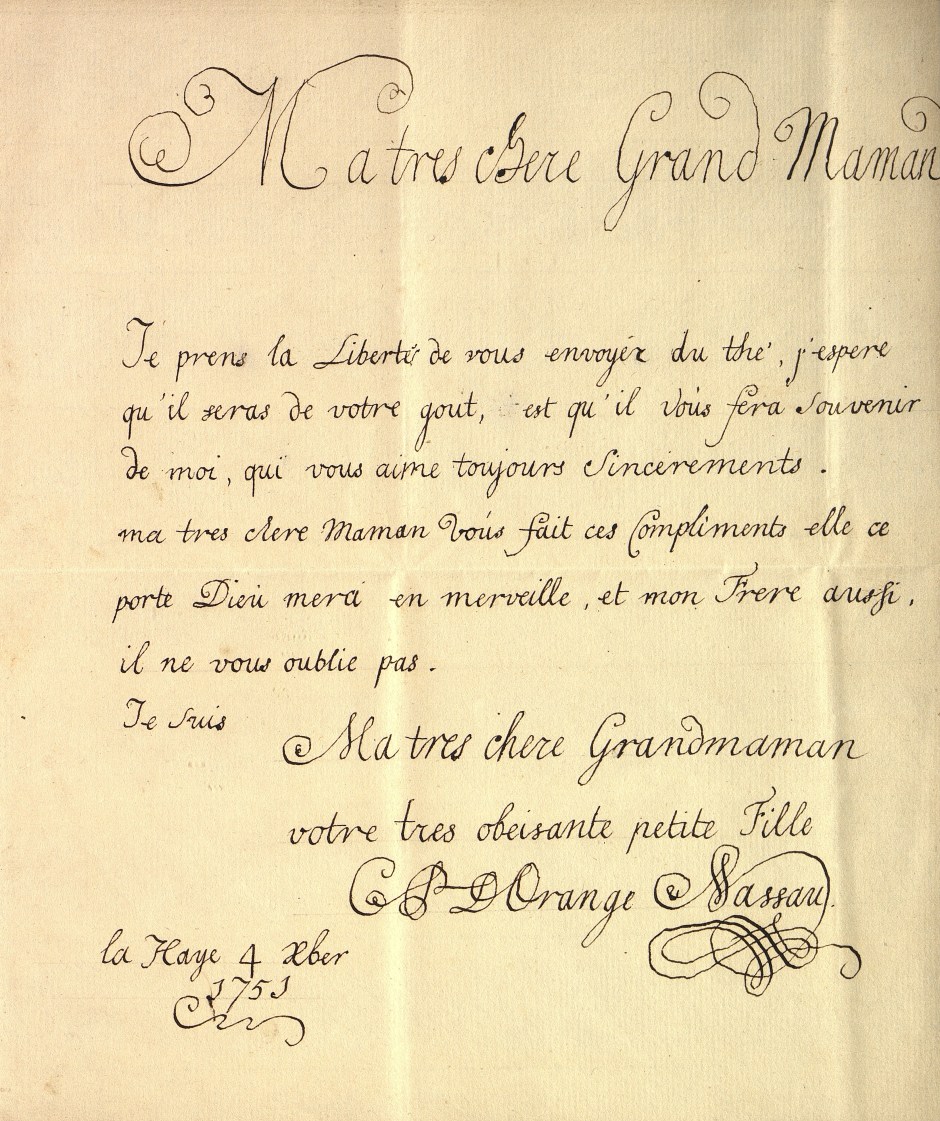 Ma tres chere Grand Maman
Je prens la Liberté de vous envoyér du thé, j'espere
qu'il seras de votre gout, est qu'il vous fera souvenir
de moi, qui vous aime toujours sincerements.
ma tres chere Maman vous fait ces Compliments elle ce
porte Dieu merci en merveille, et mon Frere aussi,
il ne vous oublie pas.
Je suis
Ma tres chere Grandmaman
votre tres obeisante petite Fille
C P D'Orange Nassau.
la Haye 4 Xber
1751